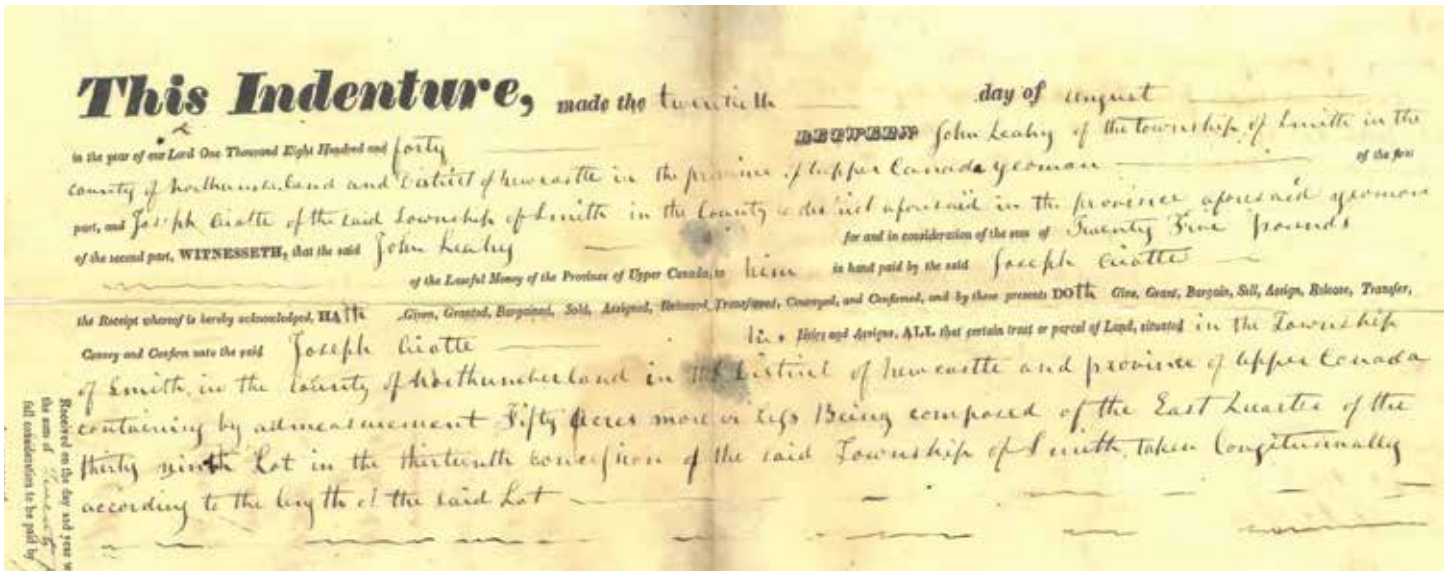 This Indenture, made the twentieth day of august
in the year of our Lord One Thousand Eight Hundred and forty BETWEEN John Leahy of the township of Smith in the
county of Northumberland and District of Newcastle in the province of upper Canada yeoman of the first
part, and Joseph of the said Township of Smith in the County & district aforesaid in the province aforesaid yeoman
of the second part, WITNESSETH, that the said John Leahy for and in consideration of the sum of Twenty Five pounds
of the Lawful Money of the Province of Upper Canada, to him in hand paid by the said Joseph
the Receipt whereof is hereby acknowledged, HAth Given, Granted, Bargained, Sold, Assigned, Released, Transferred, Conveyed, and Confirmed, and by these presents DOth Give, Grant, Bargain, Sell, Assign, Release, Transfer,
Convey and Confirm unto the said Joseph his Heirs and Assigns, ALL that certain tract or parcel of Land, situated in the Township
of Smith in the County of Northumberland in the District of Newcastle and province of upper Canada
containing by admeasurement Fifty acres more or less Being composed of the East Quarter of the
thirty ninth Lot in the thirteenth concession of the said Township of Smith, taken Longitunnally
according to the length of the said Lot
Received on the day and year
the sum of
full consideration to be paid by